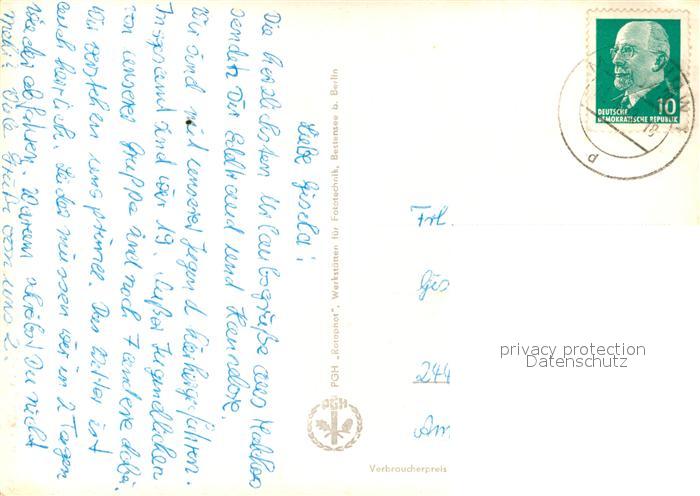 Liebe Gisela!
Die herzlichsten Urlaubsgrüße aus
sendet Dir und Hannelore.
Wir sind mit unserer Jugend hierhingefahren.
Insgesamt sind wir 19. Außer Jugendlichen
von unserer Gruppe sind noch 7 andere dabei.
Wir verstehen uns prima. Das Wetter ist
auch herrlich. Leider müssen wir in 2 Tagen
wieder abfahren. Warum schreibst Du nicht
mehr? Viele Grüße von uns 2.
PGH „Rotophot", Werkstätten für Fototechnik, Bestensee b. Berlin
PGH
Verbraucherpreis
DEUTSCHE
DEMOKRATISCHE REPUBLIK
10
18
d
Frl.
Gis
244
Am
privacy protection
Datenschutz